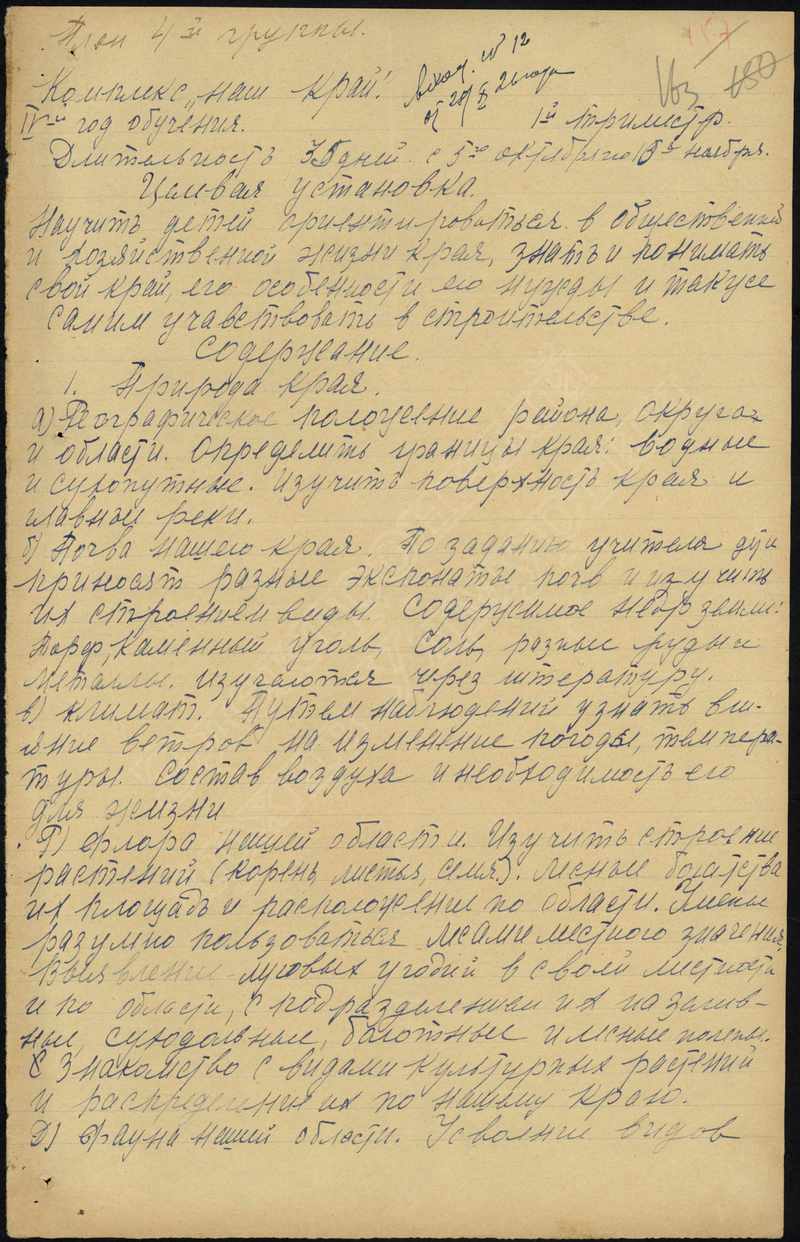 План 4й группы.
Комплекс „наш край!
Исход. № 12
от 20/X 26 года
IVый год обучения. 1й триместр.
Длительность 35 дней с 5го октября по 15е ноября.
Целевая установка.
Научить детей ориентироваться в общественной
и хозяйственной жизни края, знать и понимать
свой край, его особенности его нужды и также
самим учавствовать в строительстве.
Содержание.
1. Природа края.
а) Географическое положение района, округа
и области. Определить границы края: водные
и сухопутные. Изучить поверхность края и
главные реки.
б) Почва нашего края. По заданию учителя дети
приносят разные экспонаты почв и изучить
их строением виды. Содержимое недр земли:
Торф, каменный уголь, соль, разные руды и
металлы. изучаются через литературу.
в) климат. Путем наблюдений узнать вли-
яние ветров на изменение погоды, темпера-
туры. Состав воздуха и необходимость его
для жизни
Г) Флора нашей области. Изучить строение
растений (корень, листья, семя). Лесные богатства
их площадь и расположение по области. Уменье
разумно пользоваться лесами местного значения.
Выявление луговых угодий в своей местности
и по области, с подразделением их на залив-
ные, суходольные, болотные и лесные поляны.
Знакомство с видами культурных растений
и распределения их по нашему краю.
Д) Фауна нашей области. Усвоение видов